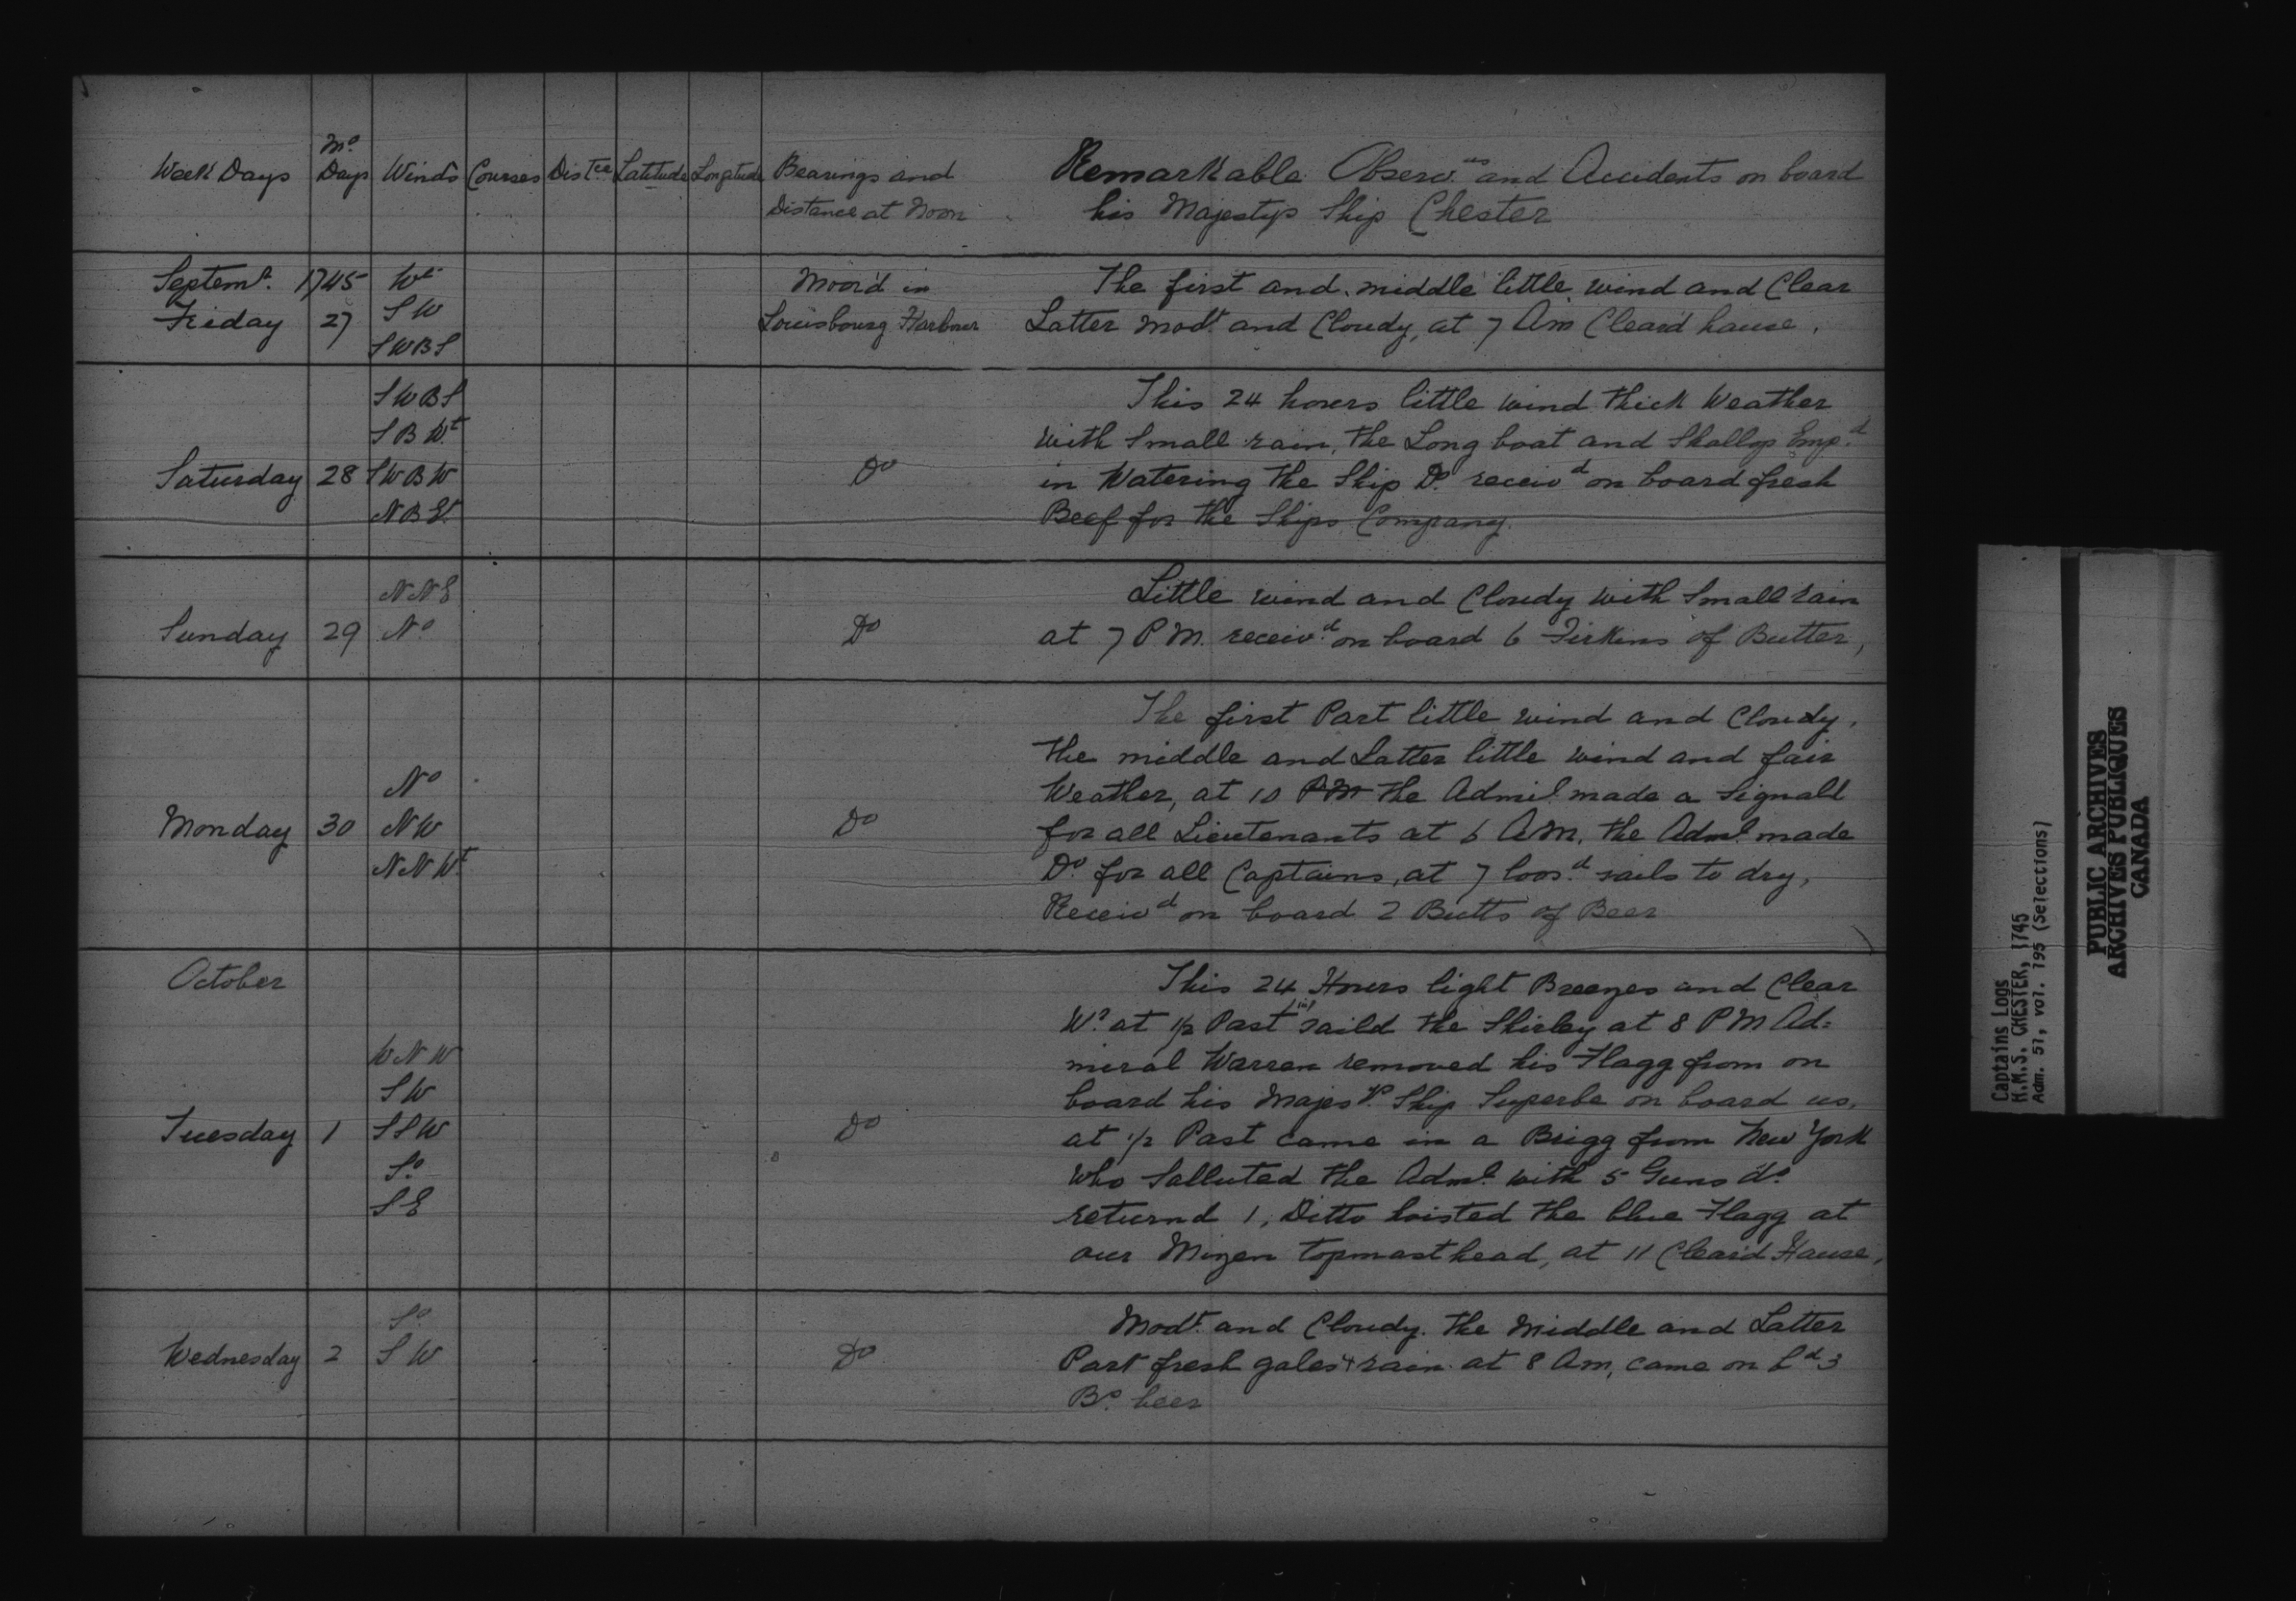 Week Days Mo Days Winds Courses Distce Latitude Longitude Bearings and Distance at Noon
Remarkable Observ.ns and Accidents on board
his Majestys Ship Chester
Septemr. 1745 Wt
Friday 27 SW
SWBS
Moor'd in
Louisbourg Harbour
The first and middle little wind and Clear
Latter modt. and Cloudy, at 7 Am Clear'd hause,
Saturday 28
SWBS
SBWt
SWBW
NBEt.
Do
This 24 hours little wind thick Weather
with Small rain, the Long boat and Shallop Emp.d
in Watering the Ship Do. receiv'd on board fresh
Beef for the Ships Company.
Sunday 29
NNE
No
Do
Little wind and Cloudy with Small rain
at 7 P.M. receiv.d on board 6 Firkins of Butter,
Monday 30
No
NW
NNWt
Do
The first Part little wind and Cloudy,
the middle and Latter little wind and fair
Weather, at 10 PM the Admil. made a Signall
for all Lieutenants at 6 AM, the Adml. made
Do. for all Captains, at 7 loos.d sails to dry,
Receiv'd on board 2 Butts of Beer
October
Tuesday 1
WNW
SW
SSW
So.
SE
Do
This 24 Hours light Breezes and Clear
Wr. at 1/2 Past saild the Shirley at 8 PM Ad=
miral Warren removed his Flagg from on
board his Majestys Ship Superbe on board us,
at 1/2 Past came in a Brigg from New York
who Salluted the Adml. with 5 Guns do.
returnd 1, Ditto hoisted the blue Flagg at
our Mizen topmasthead, at 11 Clear'd Hause,
Wednesday 2
So
SW
Do
Modt. and Cloudy. the Middle and Latter
Part fresh gales & rain at 8 Am, came on bd 3
Bs. beer
Captains Logs
H.M.S. CHESTER, 1745
Adm. 51, vol. 195 (Selections)
PUBLIC ARCHIVES
ARCHIVES PUBLIQUES
CANADA